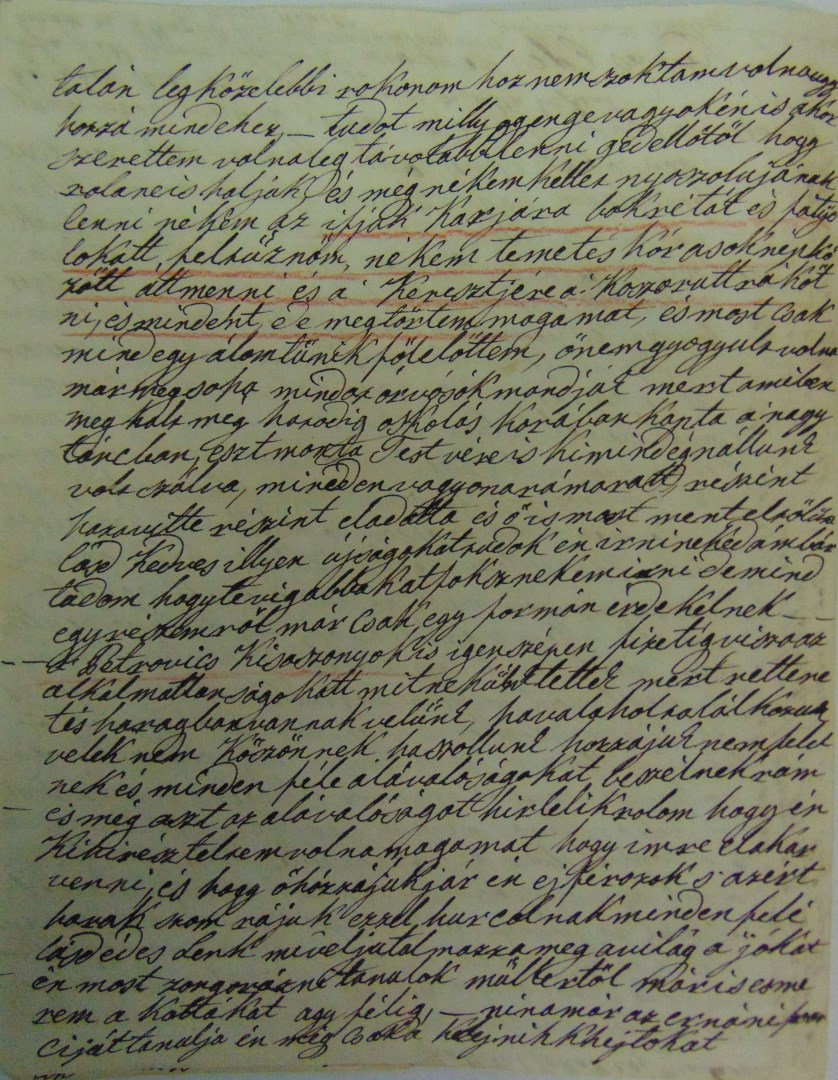 talán legközelebbi rokonom hoz nem szoktam volna úgy
hozzá mindehez, – tudot milly gyenge vagyok én is akor
szerettem volna leg távolabb lenni Gedellőtől hogy
rolane is haljak, és még nékem kellet nyoszolujának
lenni nékem az ifjak Karjára bokrétát és fátyo
lokatt felfűznöm, nékem temetéskor a sok nép kö
zött áttmenni és a Keresztjére a Koszorutt rá köt
ni, és mindent, de megtörtem magamat, és most csak
mind egy álom tűnik föl előttem, ő nem gyógyult volna
már meg soha mind az órvósok mondják mert amiben
meg halt meg haródig oskolás korában kapta a nagy
táncban, eszt monta Testvére is ki mindég nállunk
volt szálva, minden vagyona rá maratt, részint
haza vitte részint eladatta és ő is most ment el
lásd Kedves illyen újságokat tudok én irni nekéd ámbár
tudom hogy te vigabbakat foksz nekem irni de mind
egy részemről már csak egy formán érdekelnek –
– a Petrovics Kisaszonyok is igen szépen fizetig vissza az
alkalmattanságokatt mit nekik tettek mert rettene
tés haragban vannak velünk, ha valahol találkozunk
velek nem Köszönnek, ha szollunk hozzájuk nem felel
nek és minden féle alávalóságokat beszélnek rám
és még aszt az alávalóságot hirlelik rolom hogy én
Kihirésztelsem volna magamat hogy imre elakar
venni, és hogy őhozzájuk jár én ej férozok s azért
harakszom rájuk ezzel hurcolnak minden felé
lásd édes Lenk mivel jutalmazza meg a világ a jókát
én most zongorázni tanulok müllertől már is esme
rem a Kottákat agy félig, – nina már az ernáni
ciját tanulja én még csak a